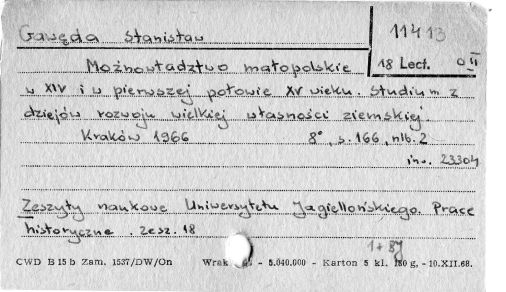 Gawęda Stanisław
11413
18 Lect. O II
Możnowładztwo małopolskie
w XIV i w pierwszej połowie XV wieku. Studium z
dziejów rozwoju wielkiej własności ziemskiej
Kraków 1966 8°, s. 166, nlb. 2
inw. 23304
Zeszyty naukowe Uniwersytetu Jagiellońskiego. Prace
historyczne. zesz. 18
CWD B 15 b Zam. 1537/DW/On - 5.040.000 - Karton 5 kl. 180 g, - 10.XII.68.